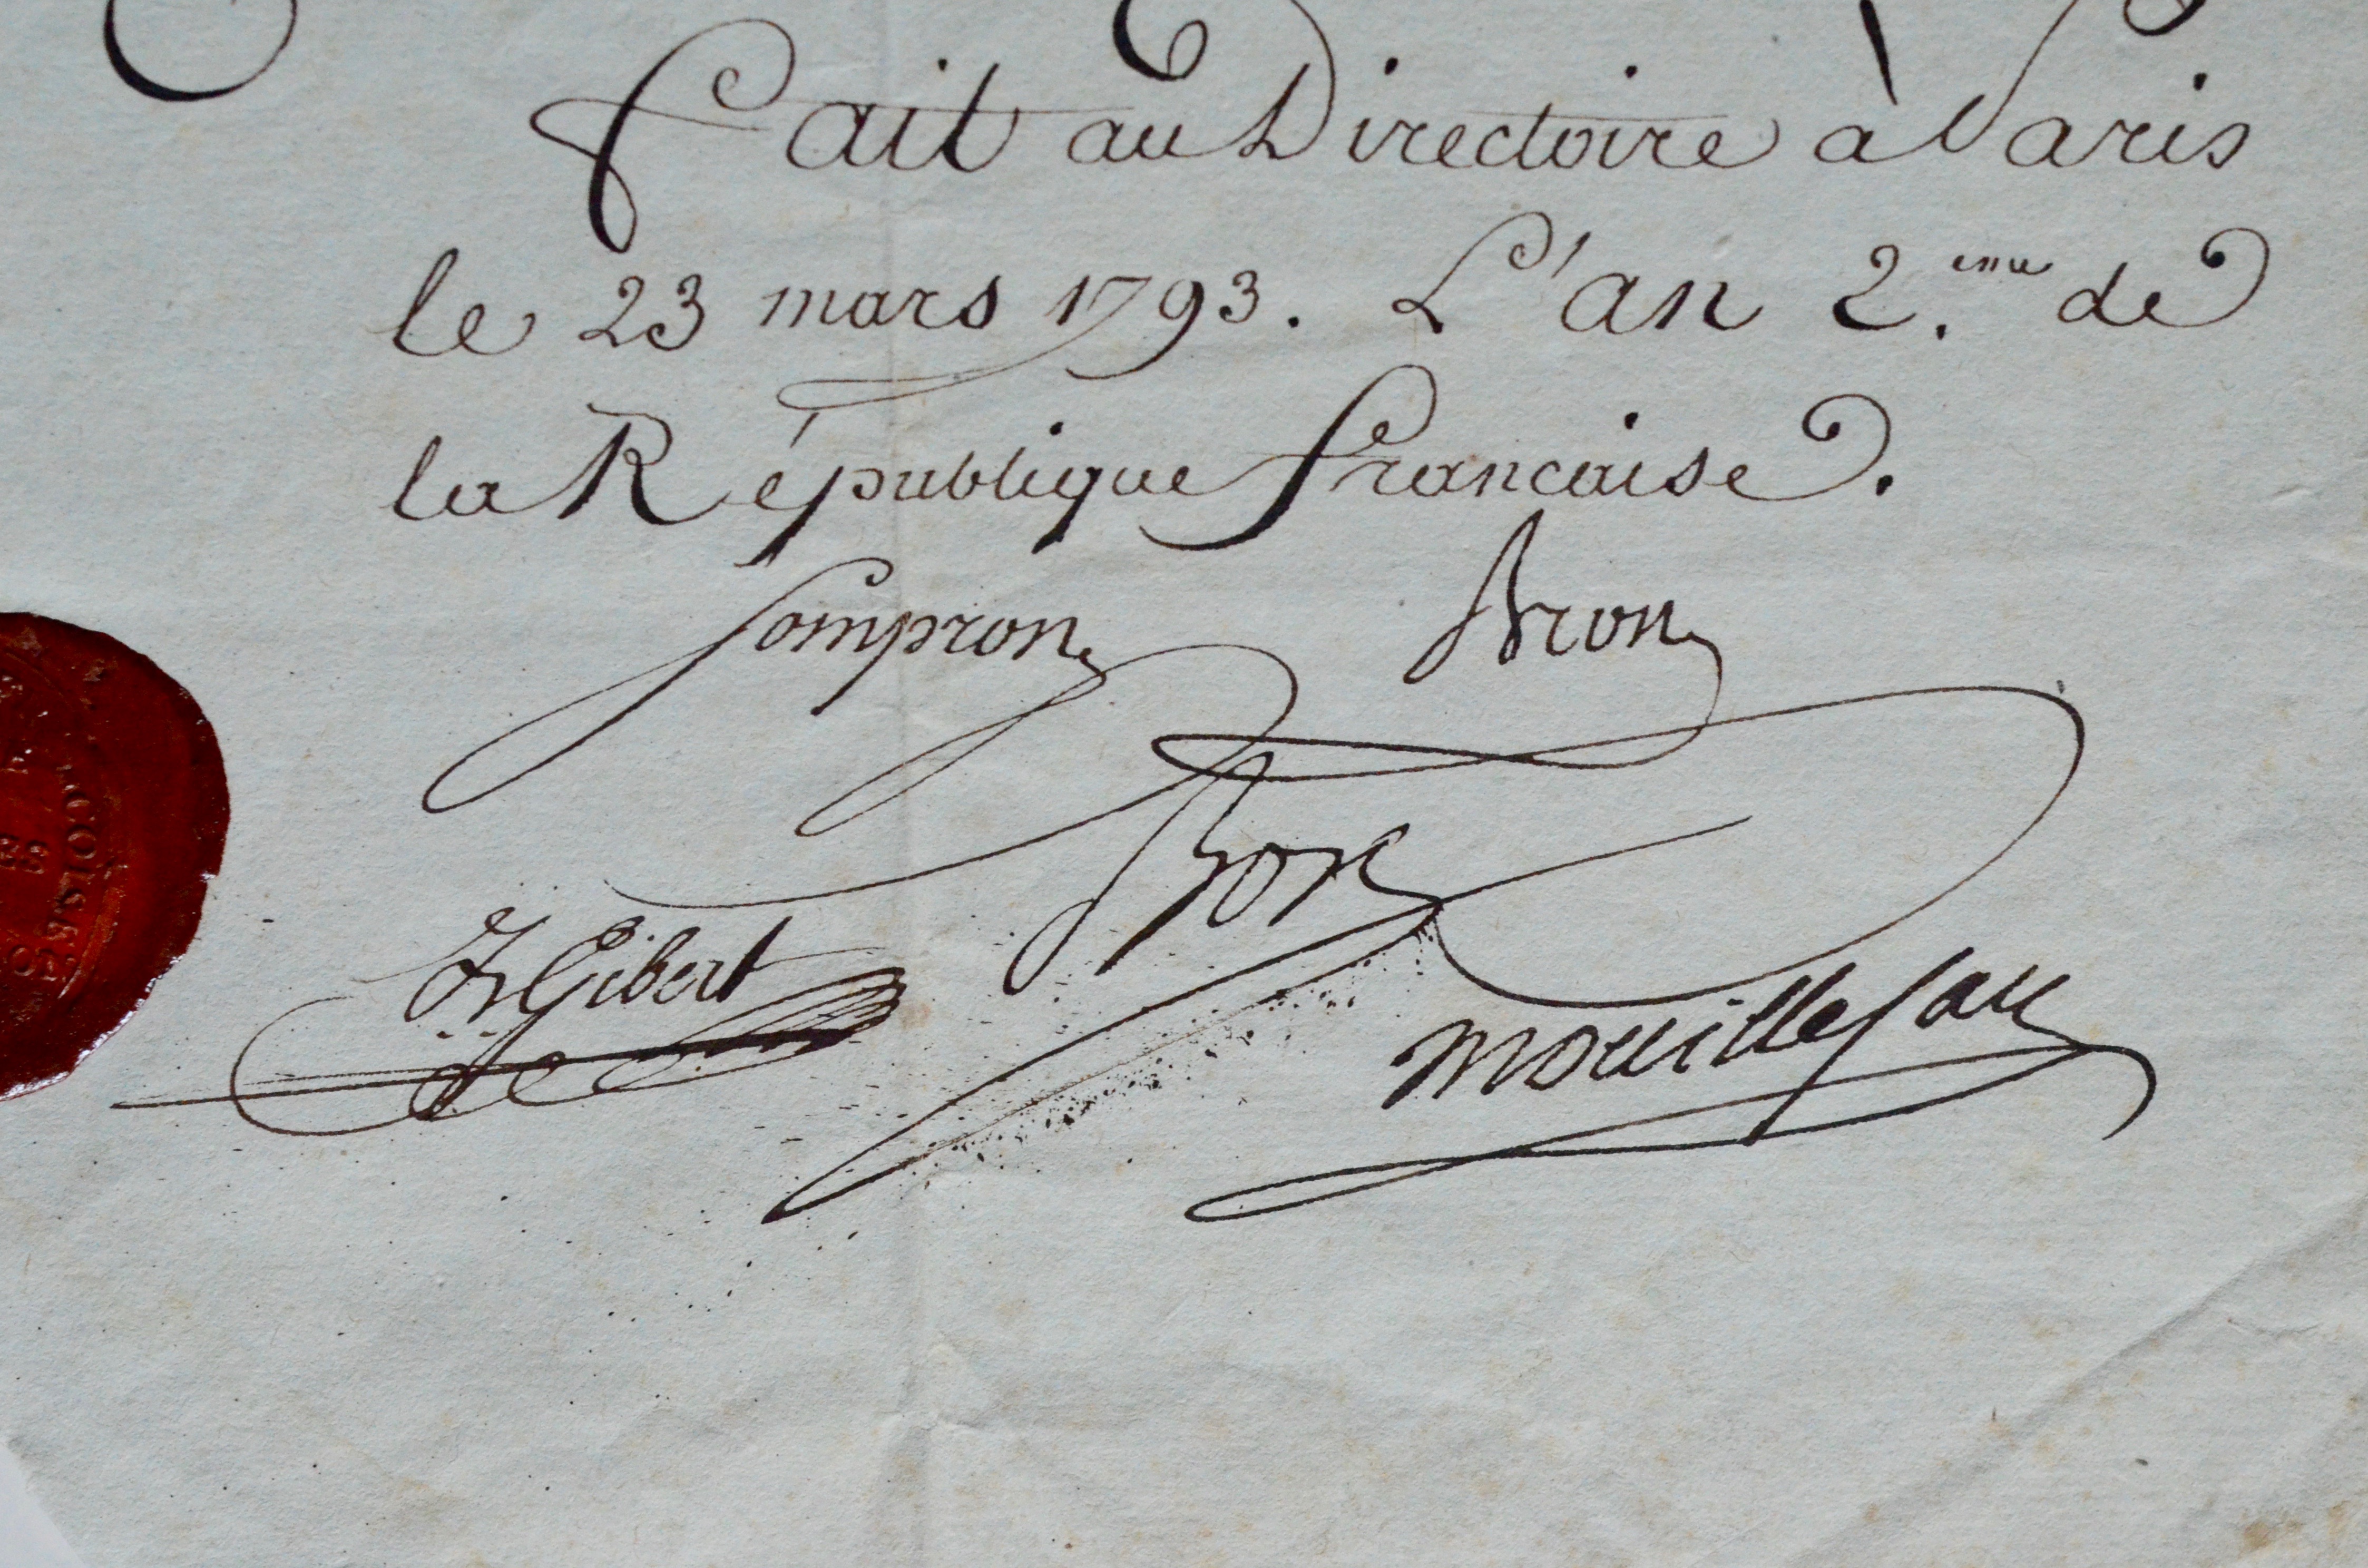 Fait au Directoire à Paris
le 23 mars 1793. L'an 2.eme de
la République francaise.
Sompron Aron
Bon
Gibert
mouillesau